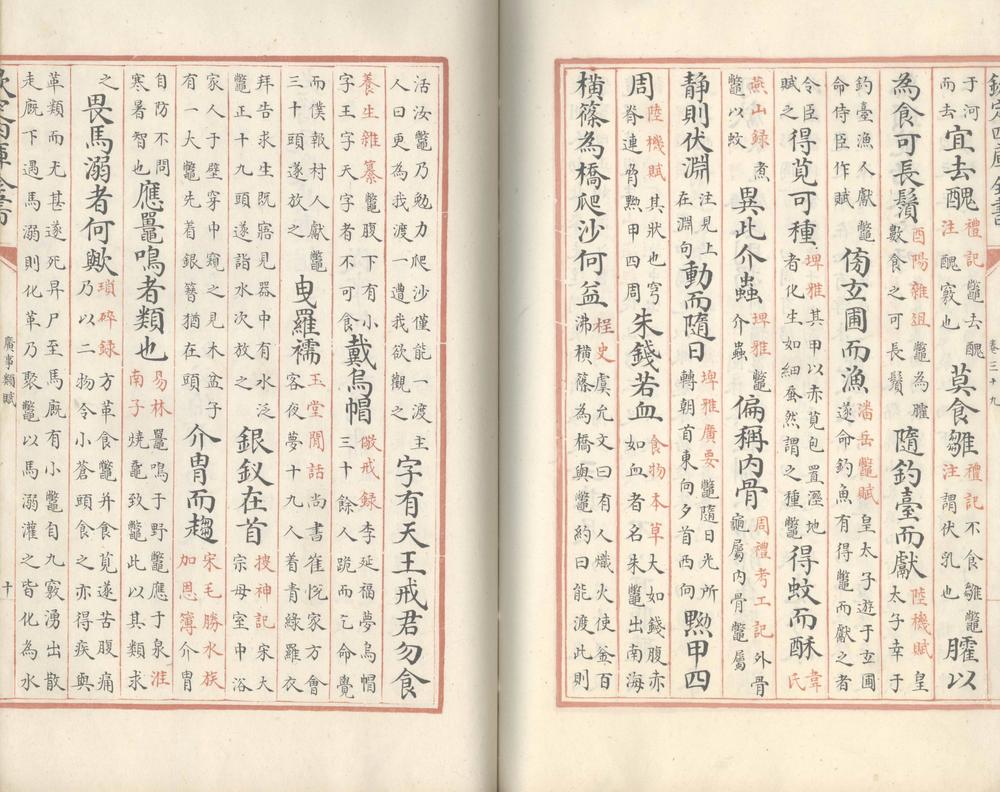 欽定四庫全書 卷三十九
于河而去宜去醜禮記鼈去醜注醜竅也莫食雛禮記不食雛鼈注謂伏乳也臛以
為食可長鬚酉陽雜俎鼈為臛數食之可長鬚隨釣臺而獻陸機賦皇太子幸于
釣臺漁人獻鼈命侍臣作賦傍玄圃而漁潘岳鼈賦皇太子遊于玄圃遂命釣魚有得鼈而獻之者
令臣賦之得莧可種埤雅其甲以赤莧包置溼地者化生如細蚕然謂之種鼈得蚊而酥韋氏
燕山録煮鼈以蚊異此介蟲埤雅鼈介蟲偏稱内骨周禮考工記外骨龜屬内骨鼈屬
静則伏淵注見上在淵句動而隨日埤雅廣要鼈隨日光所轉朝首東向夕首西向黝甲四
周陸機賦其狀也穹脊連脅黝甲四周朱錢若血食物本草大如錢腹赤如血者名朱鼈出南海
横篠為橋爬沙何益桯史虞允文曰有人熾火使釡百沸横篠為橋與鼈約曰能渡此則
活汝鼈乃勉力爬沙僅能一渡主人曰更為我渡一遭我欲觀之字有天王戒君勿食
養生雜纂鼈腹下有小字王字天字者不可食戴烏帽儆戒録李延福夢烏帽三十餘人跪而乞命覺
而僕報村人獻鼈三十頭遂放之曳羅襦玉堂閒話尚書崔恱家方會客夜夢十九人着青緑羅衣
拜告求生既寤見器中有水泛鼈正十九頭遂詣水次放之銀釵在首搜神記宋大宗母室中浴
家人于壁穿中窺之見木盆子有一大鼈先着銀簪猶在頭介胄而趨宋毛勝水族加恩簿介胄
自防不問寒暑智也應鼍鳴者類也易林鼍鳴于野鼈應于泉淮南子燒黿致鼈此以其類求
之畏馬溺者何歟瑣碎録方革食鼈并食莧遂苦腹痛乃以二物令小蒼頭食之亦得疾與
革類而无甚遂死舁尸至馬廐有小鼈自九竅湧出散走廐下遇馬溺則化革乃聚鼈以馬溺灌之皆化為水
欽定四庫全書 廣事類賦 十